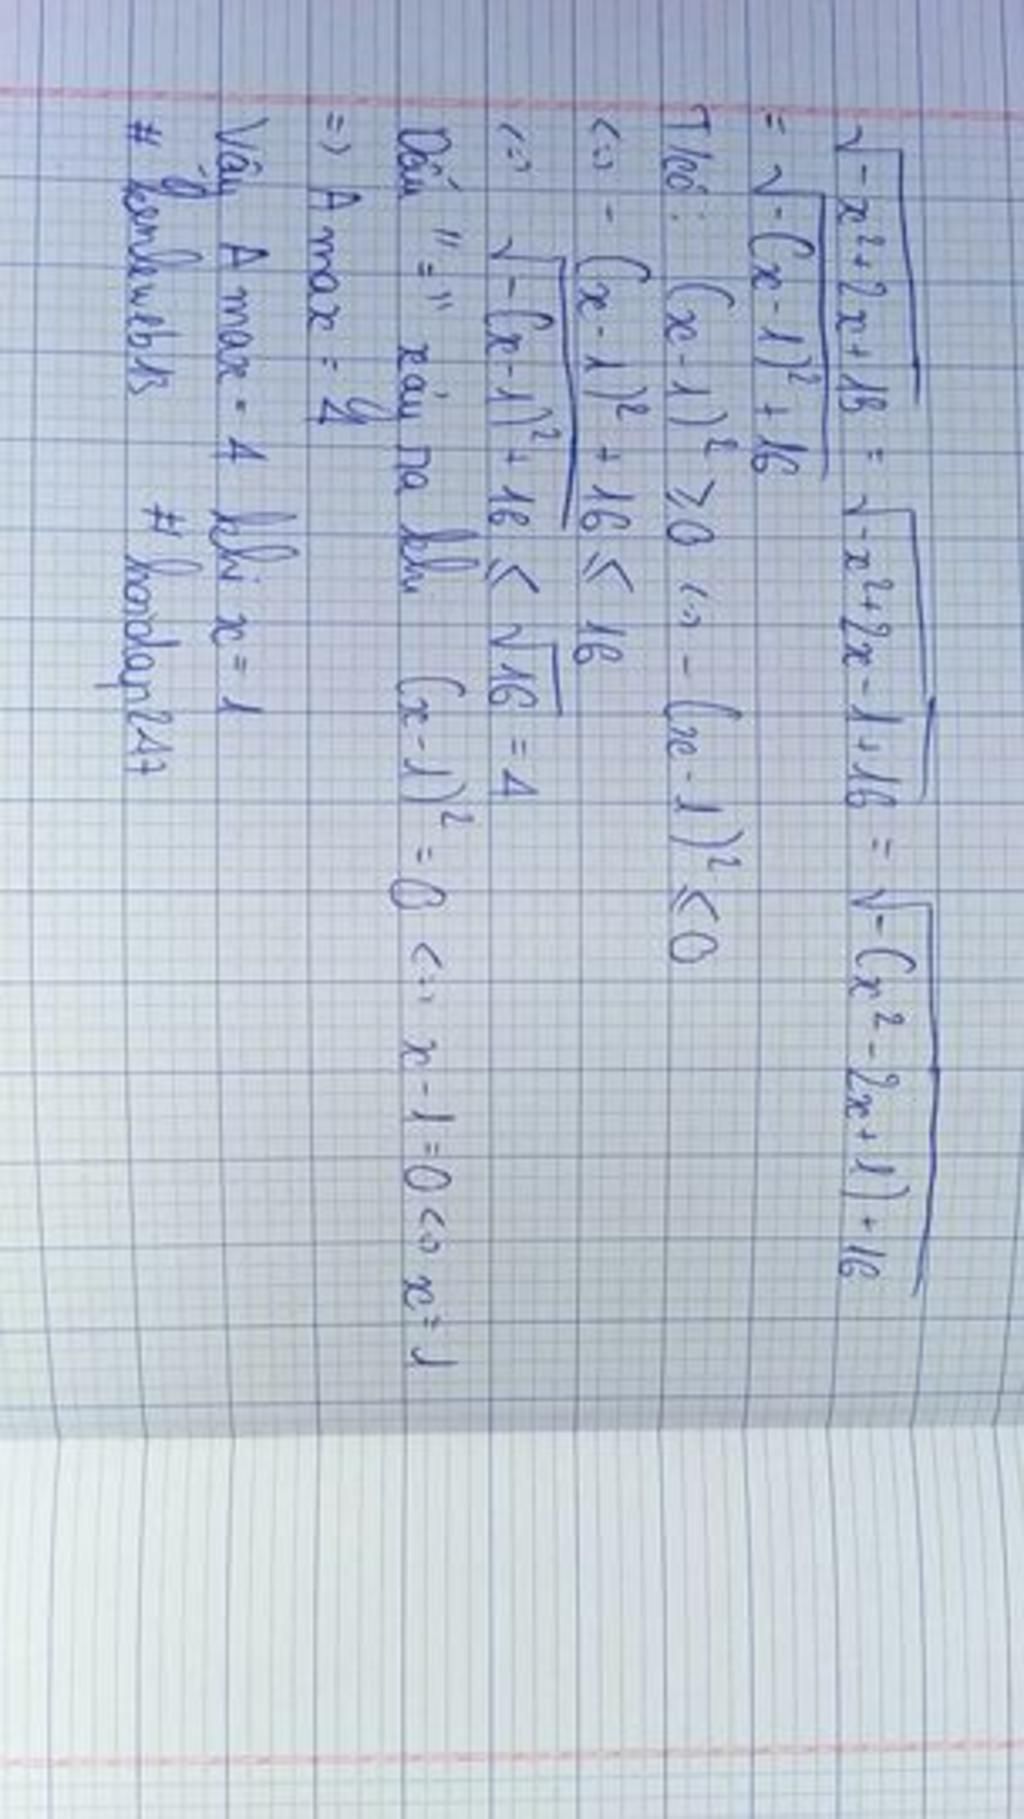 √(-x²+2x+15) = √(-x²+2x-1+16) = √(-(x²-2x+1)+16)
= √(-(x-1)²+16)
Ta có: (x-1)² ≥ 0 <=> -(x-1)² ≤ 0
<=> -(x-1)²+16 ≤ 16
<=> √(-(x-1)²+16) ≤ √16 = 4
Dấu "=" xảy ra khi (x-1)² = 0 <=> x-1=0 <=> x=1
=> A max = 4
Vậy A max = 4 khi x=1
# hoidap247